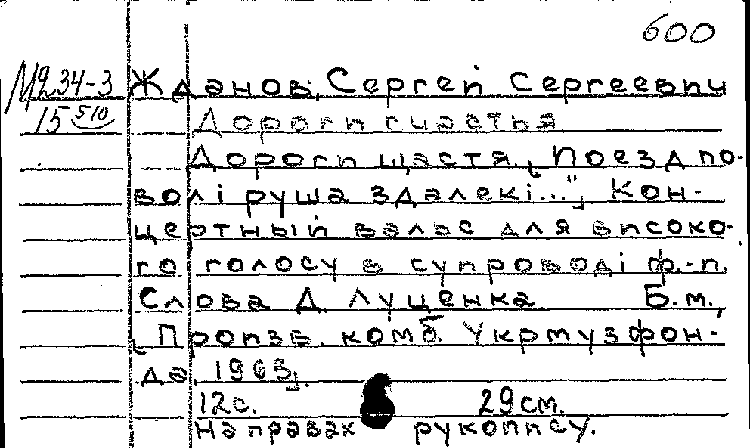 600
М2 34-3 Жданов, Сергей Сергеевич
15 510 Дороги счастья
Дороги щастя. [„Поезд по-
волі руша здалекі..."] Кон-
цертный вальс для високо-
го голосу в супроводі ф.-п.
Слова Д. Луценка Б.м.,
[Произв. комб. Укрмузфон-
да. 1963].
12с. 29см.
На правах рукопису.